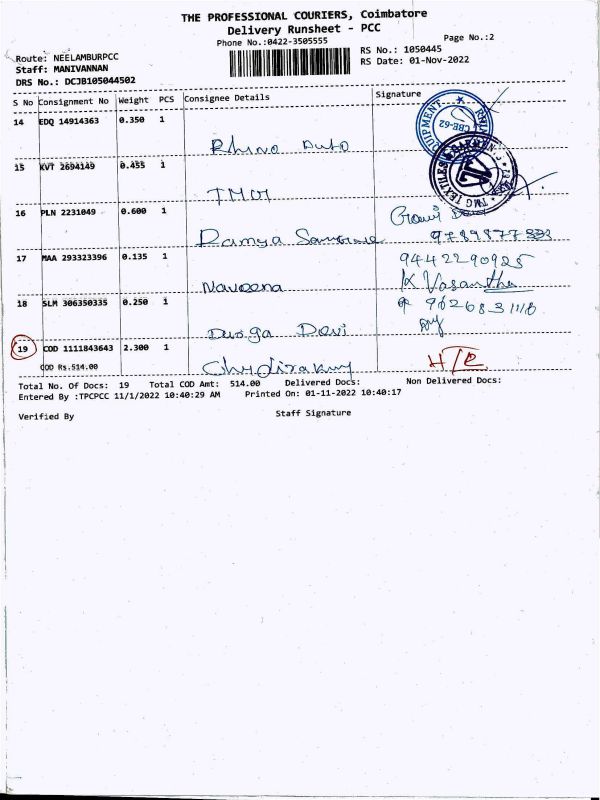 THE PROFESSIONAL COURIERS, Coimbatore
Delivery Runsheet - PCC
Phone No.:0422-3505555
Page No.:2
Route: NEELAMBURPCC
RS No.: 1050445
Staff: MANIVANNAN
RS Date: 01-Nov-2022
DRS No.: DCJB105044502
S No Consignment No Weight PCS Consignee Details Signature
14 EDQ 14914363 0.350 1
Rhino Auto
UIPMENT CBE-62
15 KVT 2694149 0.455 1
TMG
TMG TEXTILES
16 PLN 2231049 0.600 1
Ramya
9789877333
17 MAA 293323396 0.135 1
Naveena
9442290925
K Vasantha
18 SLM 306350335 0.250 1
Durga Devi
19 COD 1111843643 2.300 1
COD Rs.514.00
Total No. Of Docs: 19 Total COD Amt: 514.00 Delivered Docs: Non Delivered Docs:
Entered By :TPCPCC 11/1/2022 10:40:29 AM Printed On: 01-11-2022 10:40:17
Verified By Staff Signature